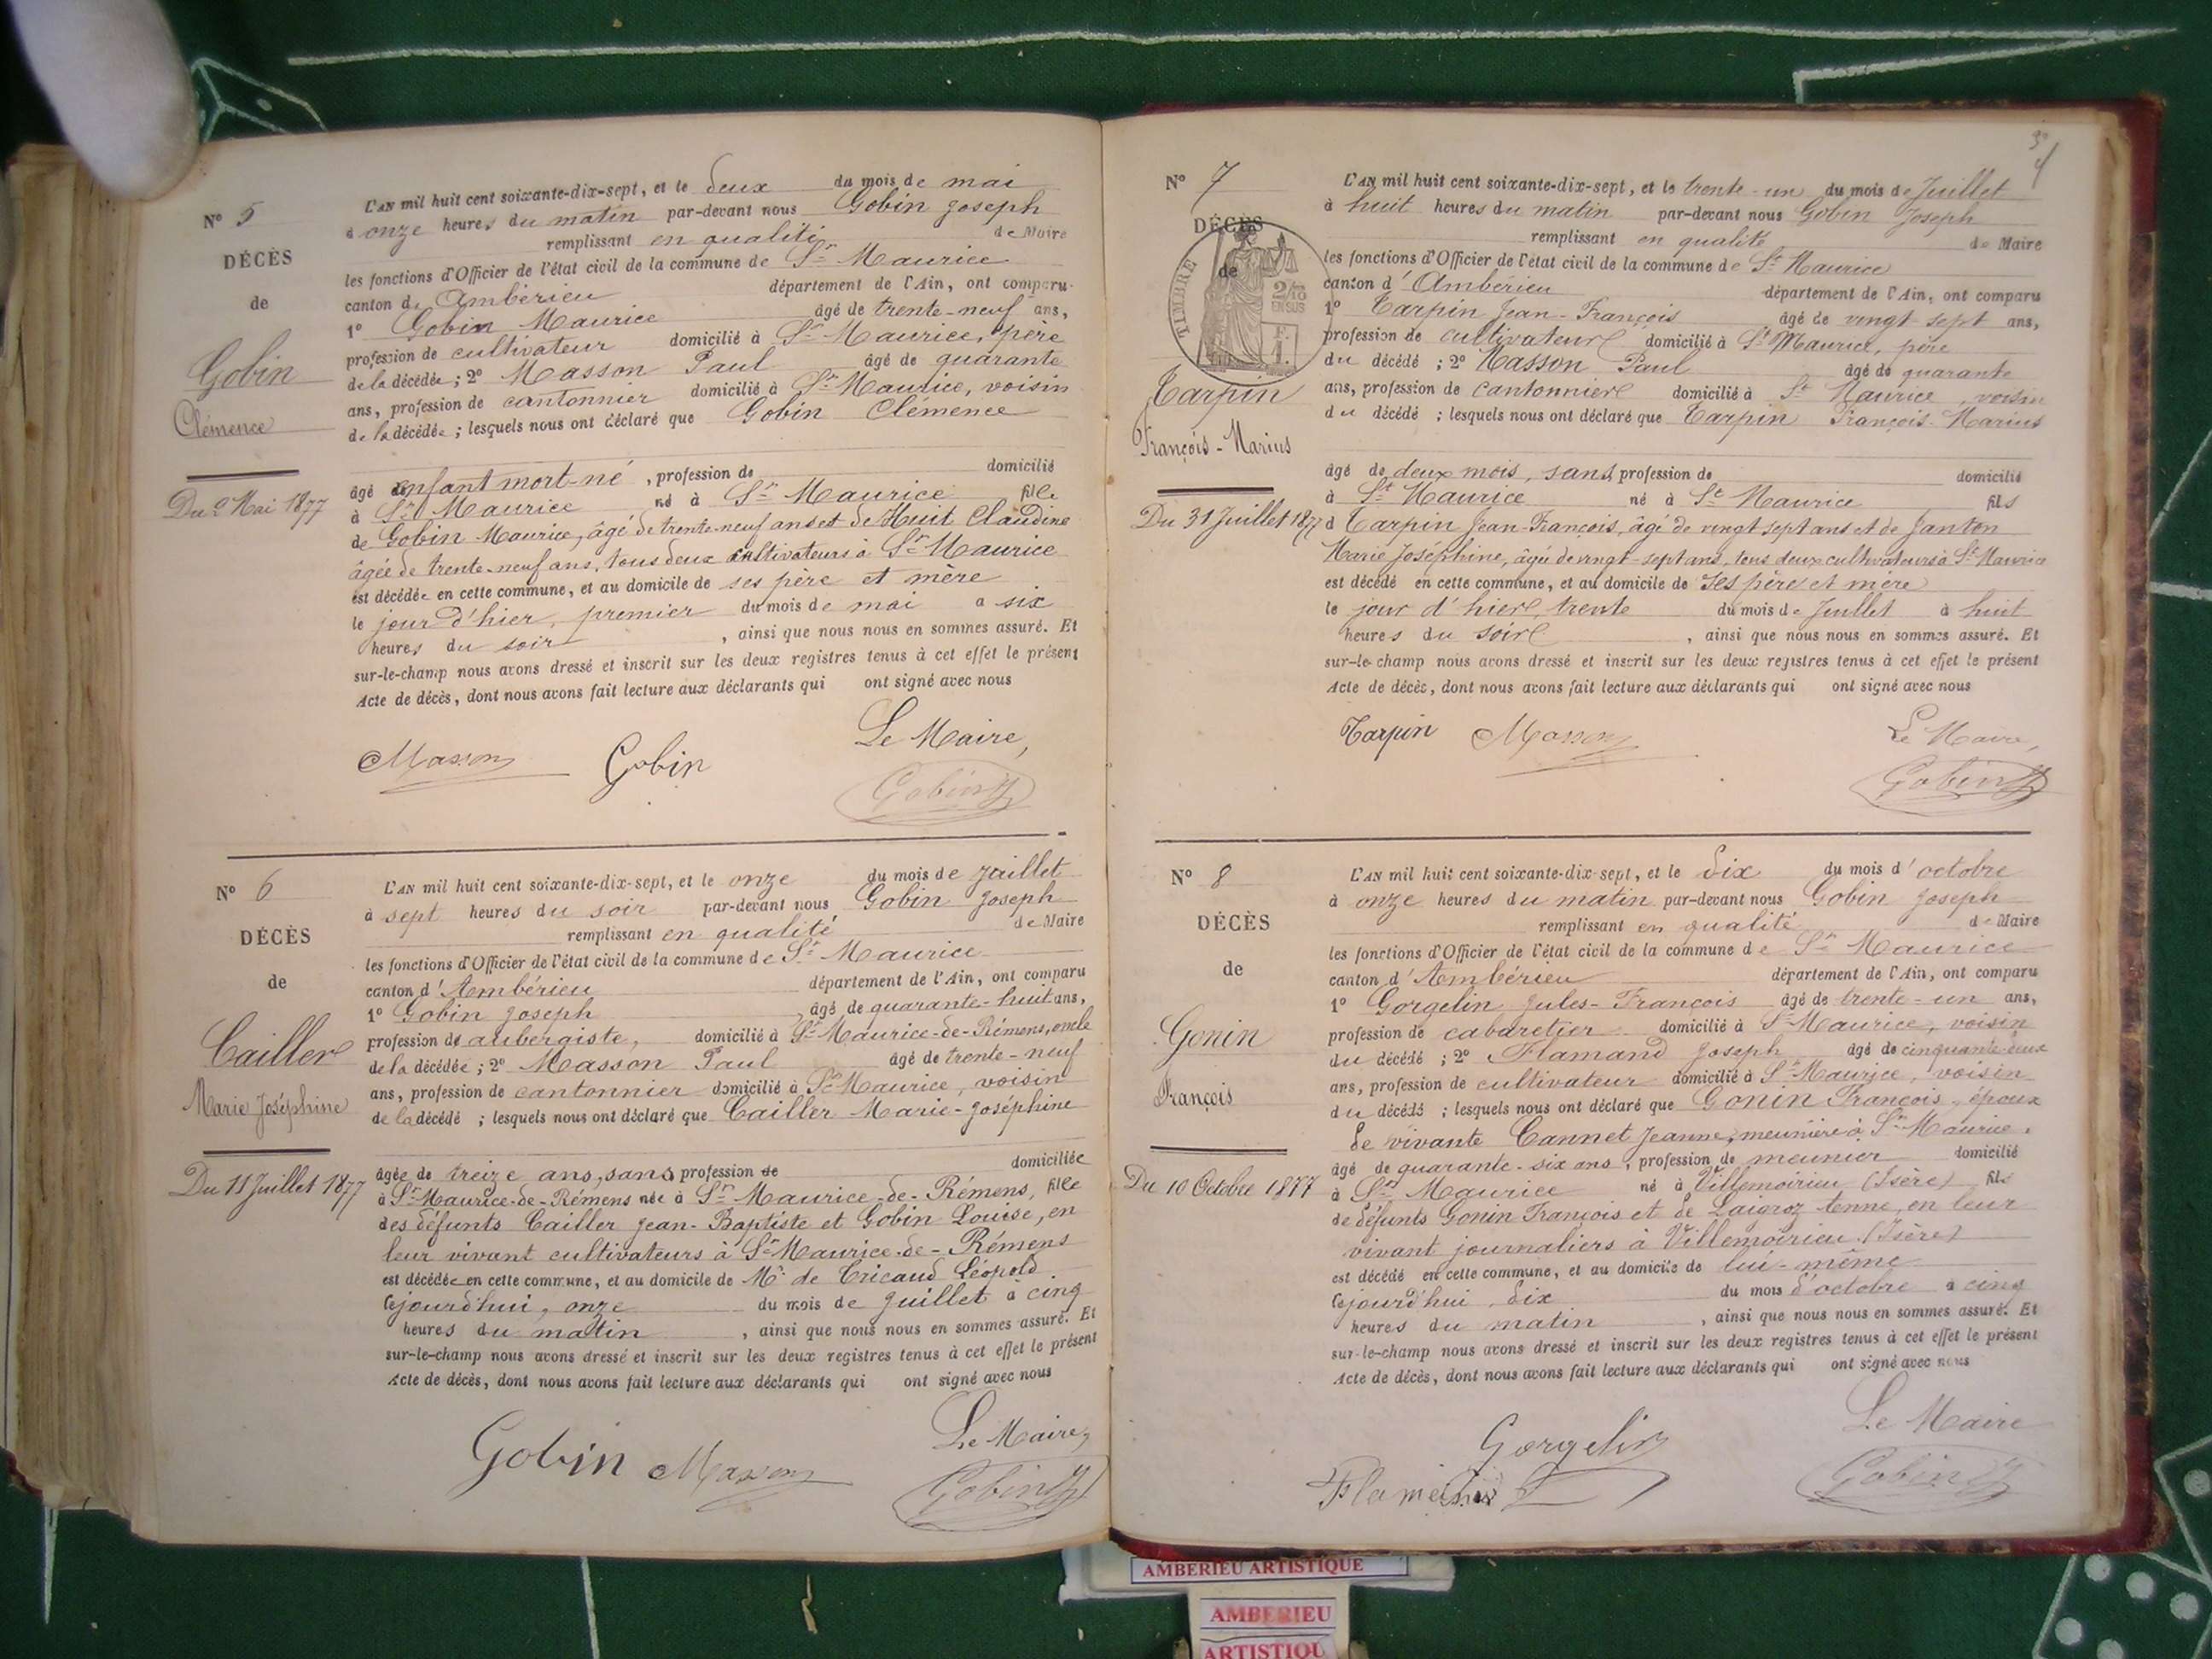 N° 5
DÉCÈS
de
Gobin
Clémence
Du 2 Mai 1877
L'AN mil huit cent soixante-dix-sept, et le deux du mois de mai
à onze heures du matin par-devant nous Gobin Joseph
remplissant en qualité de Maire
les fonctions d'Officier de l'état civil de la commune de St Maurice
canton d' Ambérieu département de l'Ain, ont comparu
1° Gobin Maurice âgé de trente-neuf ans,
profession de cultivateur domicilié à St Maurice, père
de la décédée ; 2° Masson Paul âgé de quarante
ans, profession de cantonnier domicilié à St Maurice, voisin
de la décédée ; lesquels nous ont déclaré que Gobin Clémence
âgé enfant mort-né , profession de domicilié
à St Maurice né à St Maurice fille
de Gobin Maurice, âgé de trente-neuf ans et de Huit Claudine
âgée de trente-neuf ans, tous deux cultivateurs à St Maurice
est décédée en cette commune, et au domicile de ses père et mère
le jour d'hier, premier du mois de mai a six
heures du soir , ainsi que nous nous en sommes assuré. Et
sur-le-champ nous avons dressé et inscrit sur les deux registres tenus à cet effet le présent
Acte de décès, dont nous avons fait lecture aux déclarants qui ont signé avec nous
Le Maire,
Masson Gobin
Gobin J
N° 6
DÉCÈS
de
Cailler
Marie Joséphine
Du 11 Juillet 1877
L'AN mil huit cent soixante-dix-sept, et le onze du mois de juillet
à sept heures du soir par-devant nous Gobin Joseph
remplissant en qualité de Maire
les fonctions d'Officier de l'état civil de la commune de St Maurice
canton d' Ambérieu département de l'Ain, ont comparu
1° Gobin Joseph âgé de quarante-huit ans,
profession de aubergiste, domicilié à St Maurice-de-Rémens, oncle
de la décédée ; 2° Masson Paul âgé de trente-neuf
ans, profession de cantonnier domicilié à St Maurice, voisin
de la décédé ; lesquels nous ont déclaré que Cailler Marie-Joséphine
âgée de treize ans, sans profession de domiciliée
à St Maurice-de-Rémens née à St Maurice-de-Rémens, fille
des défunts Cailler Jean-Baptiste et Gobin Louise, en
leur vivant cultivateurs à St Maurice-de-Rémens
est décédée en cette commune, et au domicile de Mr de Tricaud Léopold
cejourd'hui, onze du mois de juillet à cinq
heures du matin , ainsi que nous nous en sommes assuré. Et
sur-le-champ nous avons dressé et inscrit sur les deux registres tenus à cet effet le présent
Acte de décès, dont nous avons fait lecture aux déclarants qui ont signé avec nous
Le Maire,
Gobin Masson
Gobin J
N° 7
DÉCÈS
de
TIMBRE
2/10
EN SUS
Tarpin
François-Marius
Du 31 Juillet 1877
L'AN mil huit cent soixante-dix-sept, et le trente-un du mois de Juillet
à huit heures du matin par-devant nous Gobin Joseph
remplissant en qualité de Maire
les fonctions d'Officier de l'état civil de la commune de St Maurice
canton d' Ambérieu département de l'Ain, ont comparu
1° Tarpin Jean-François âgé de vingt-sept ans,
profession de cultivateur domicilié à St Maurice, père
du décédé ; 2° Masson Paul âgé de quarante
ans, profession de cantonnier domicilié à St Maurice, voisin
du décédé ; lesquels nous ont déclaré que Tarpin François-Marius
âgé de deux mois, sans profession de domicilié
à St Maurice né à St Maurice fils
d Tarpin Jean-François, âgé de vingt sept ans et de Janton
Marie Joséphine, âgée de vingt-sept ans, tous deux cultivateurs à St Maurice
est décédé en cette commune, et au domicile de ses père et mère
le jour d'hier, trente du mois de Juillet à huit
heures du soir , ainsi que nous nous en sommes assuré. Et
sur-le-champ nous avons dressé et inscrit sur les deux registres tenus à cet effet le présent
Acte de décès, dont nous avons fait lecture aux déclarants qui ont signé avec nous
Tarpin Masson Le Maire,
Gobin J
N° 8
DÉCÈS
de
Gonin
François
Du 10 Octobre 1877
L'AN mil huit cent soixante-dix-sept, et le dix du mois d' octobre
à onze heures du matin par-devant nous Gobin Joseph
remplissant en qualité de Maire
les fonctions d'Officier de l'état civil de la commune de St Maurice
canton d' Ambérieu département de l'Ain, ont comparu
1° Gorgelin Jules-François âgé de trente-un ans,
profession de cabaretier domicilié à St Maurice, voisin
du décédé ; 2° Flamand Joseph âgé de cinquante-deux
ans, profession de cultivateur domicilié à St Maurice, voisin
du décédé ; lesquels nous ont déclaré que Gonin François, époux
de vivante Cannet Jeanne, meunière à St Maurice.
âgé de quarante-six ans, profession de meunier domicilié
à St Maurice né à Villemoirieu (Isère) fils
de défunts Gonin François et de tenne, en leur
vivant journaliers à Villemoirieu (Isère)
est décédé en cette commune, et au domicile de lui-même
cejourd'hui, dix du mois d'octobre à cinq
heures du matin , ainsi que nous nous en sommes assuré. Et
sur-le-champ nous avons dressé et inscrit sur les deux registres tenus à cet effet le présent
Acte de décès, dont nous avons fait lecture aux déclarants qui ont signé avec nous
Le Maire
Gorgelin
Gobin J
AMBERIEU ARTISTIQUE
AMBERIEU
ARTISTIQU